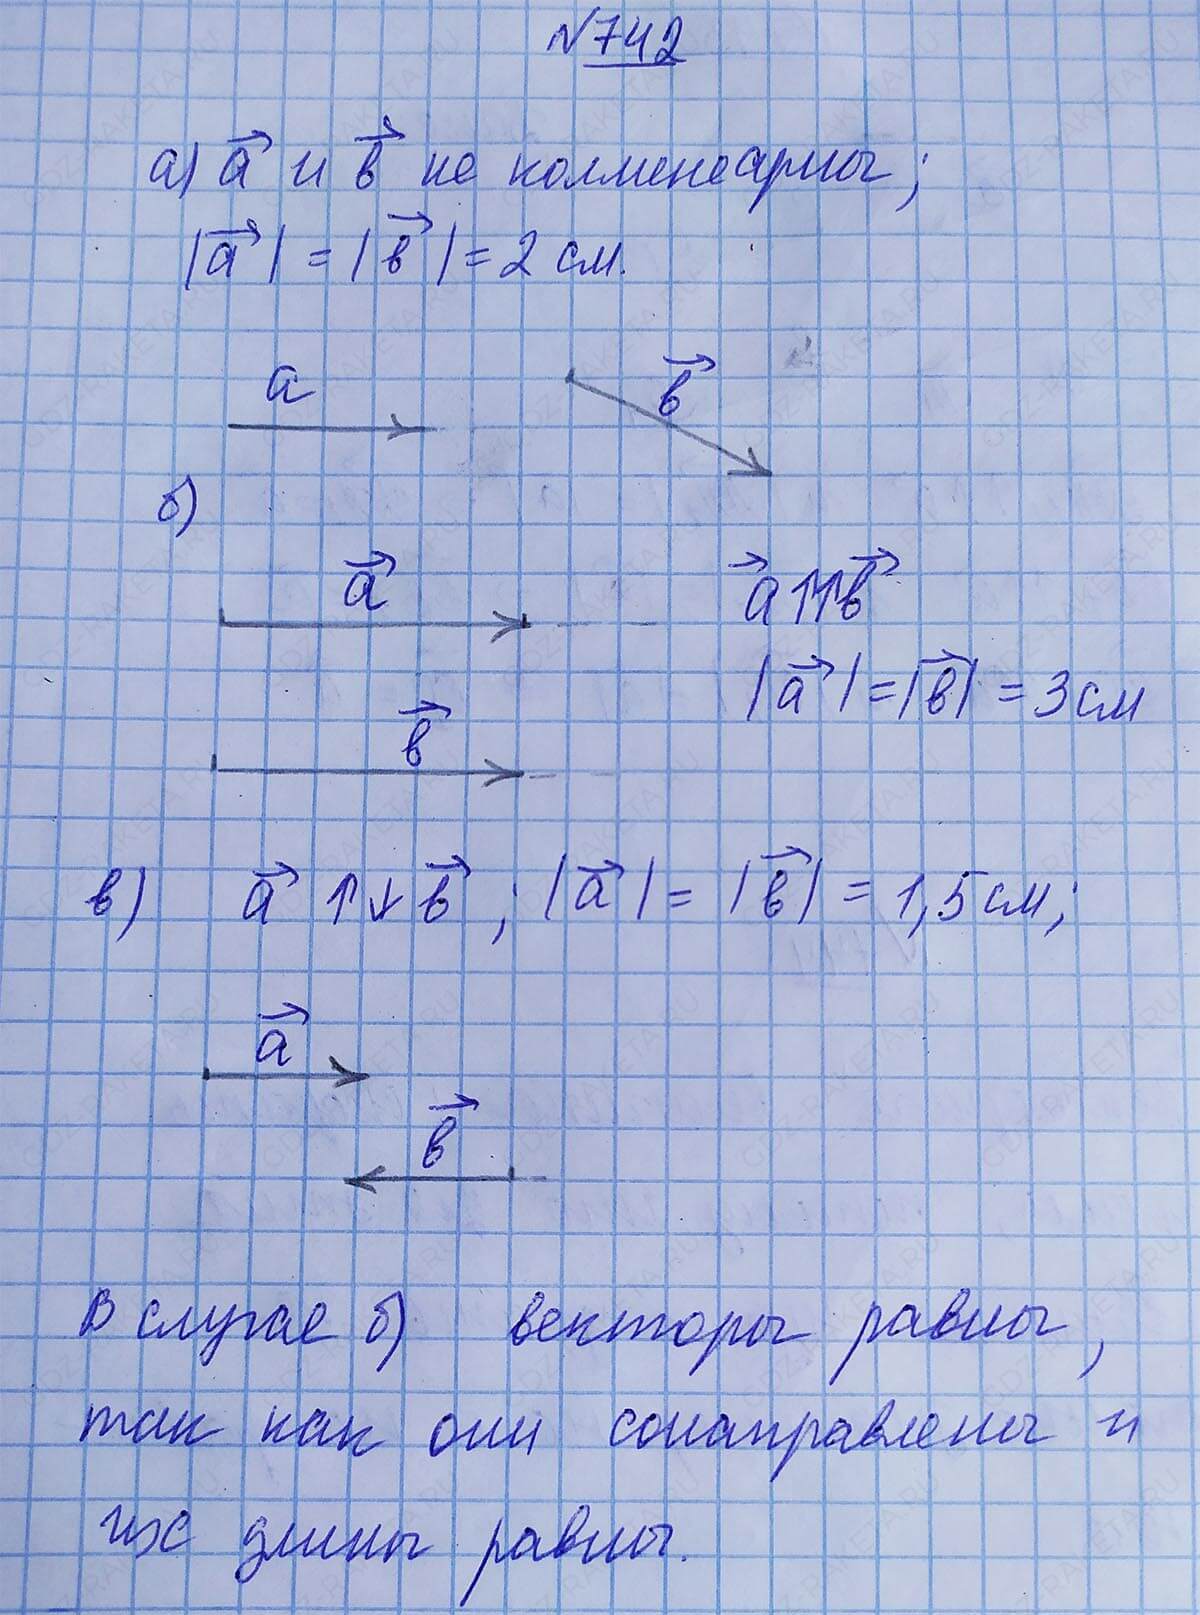 №742
а) a⃗ и b⃗ не колменеарны;
|a⃗| = |b⃗| = 2 см.
a b⃗
б)
a⃗ a⃗↑↑b⃗
|a⃗| = |b⃗| = 3 см
b⃗
в) a⃗ ↑↓ b⃗; |a⃗| = |b⃗| = 1,5 см;
a⃗
b⃗
В случае б) векторы равны,
так как они сонаправлены и
их длины равны.